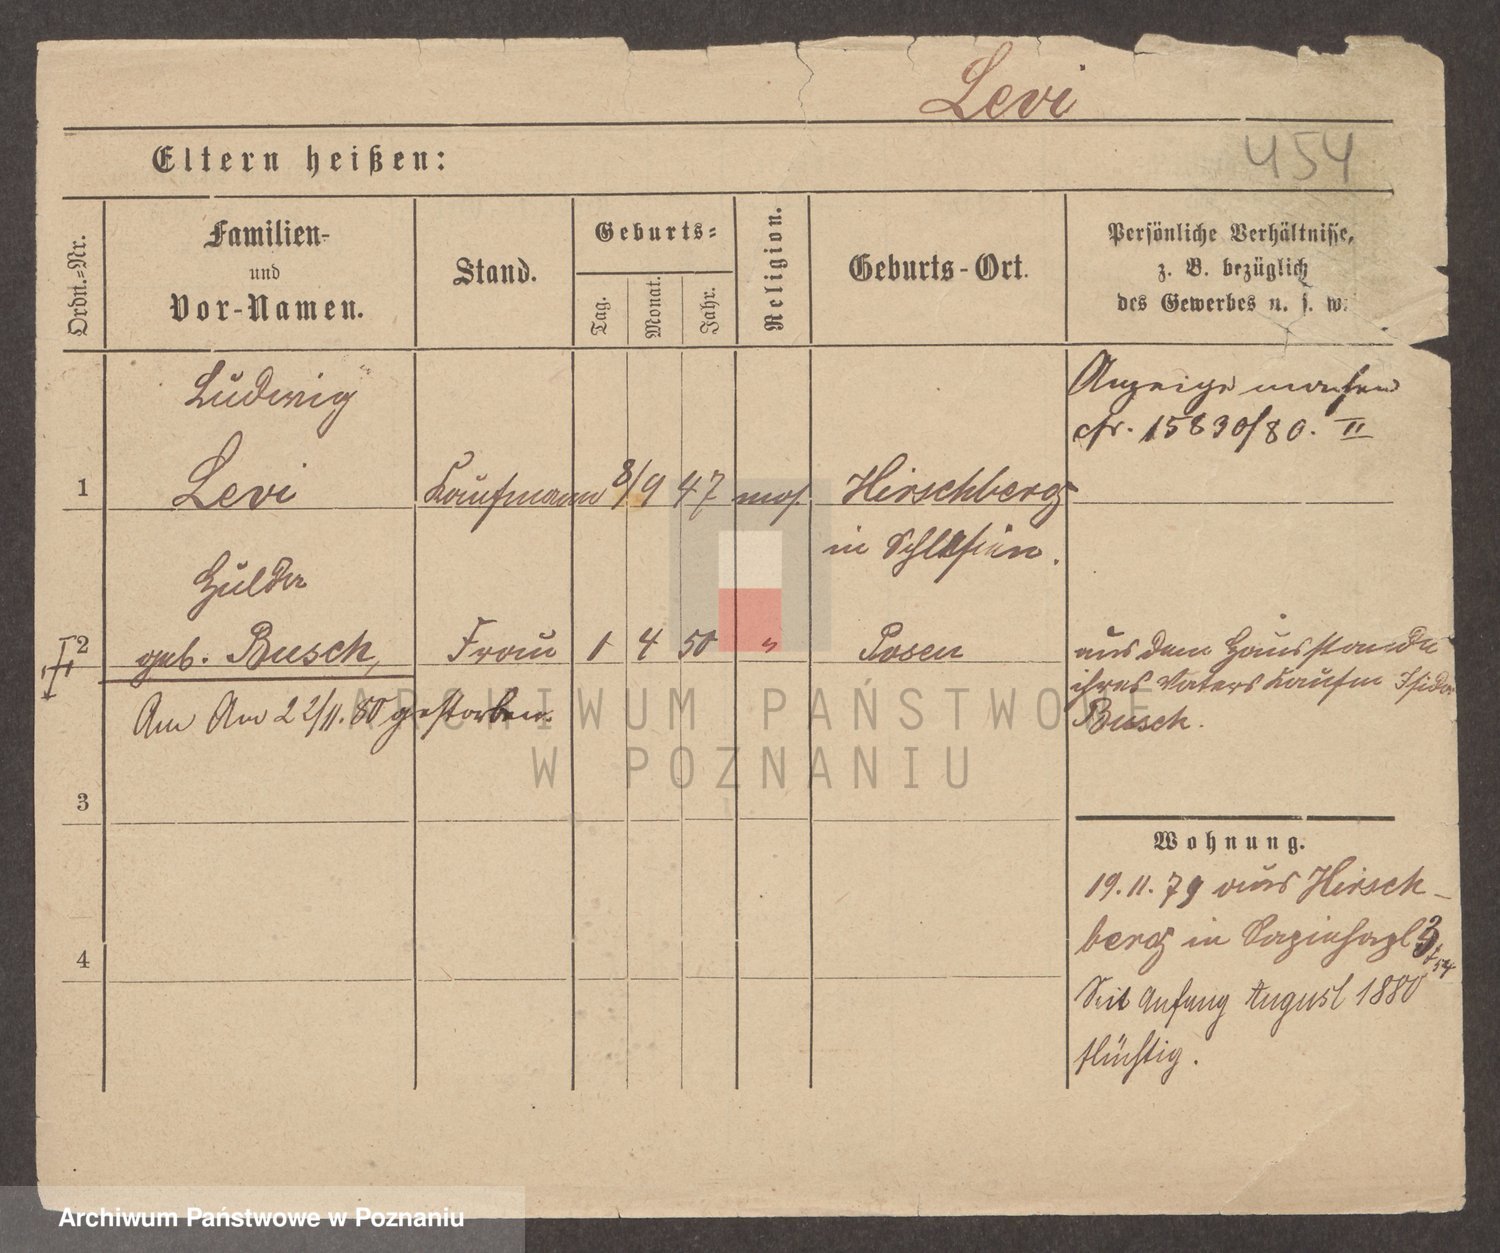 Levi
454
Eltern heißen:
Ordn.-Nr.
Familien-
und
Vor-Namen.
Stand.
Geburts-
Tag.
Monat.
Jahr.
Religion.
Geburts-Ort.
Persönliche Verhältnisse,
z. B. bezüglich
des Gewerbes u. s. w.
Ludwig
Anzeige machen
cfr. 15830/80. II
1 Levi Kaufmann 8/9 47 mos. Hirschberg
in Schlesien.
Hulda
2 geb. Busch, Frau 1 4 50 " Posen
aus dem Hausstande
ihres Vaters Kaufm Isidor
Busch.
Am 22/11. 80 gestorben.
3
Wohnung.
19.11.79 aus Hirsch-
berg in
4
Seit Anfang August 1880
flüchtig.
ARCHIWUM PAŃSTWOWE
W POZNANIU
Archiwum Państwowe w Poznaniu